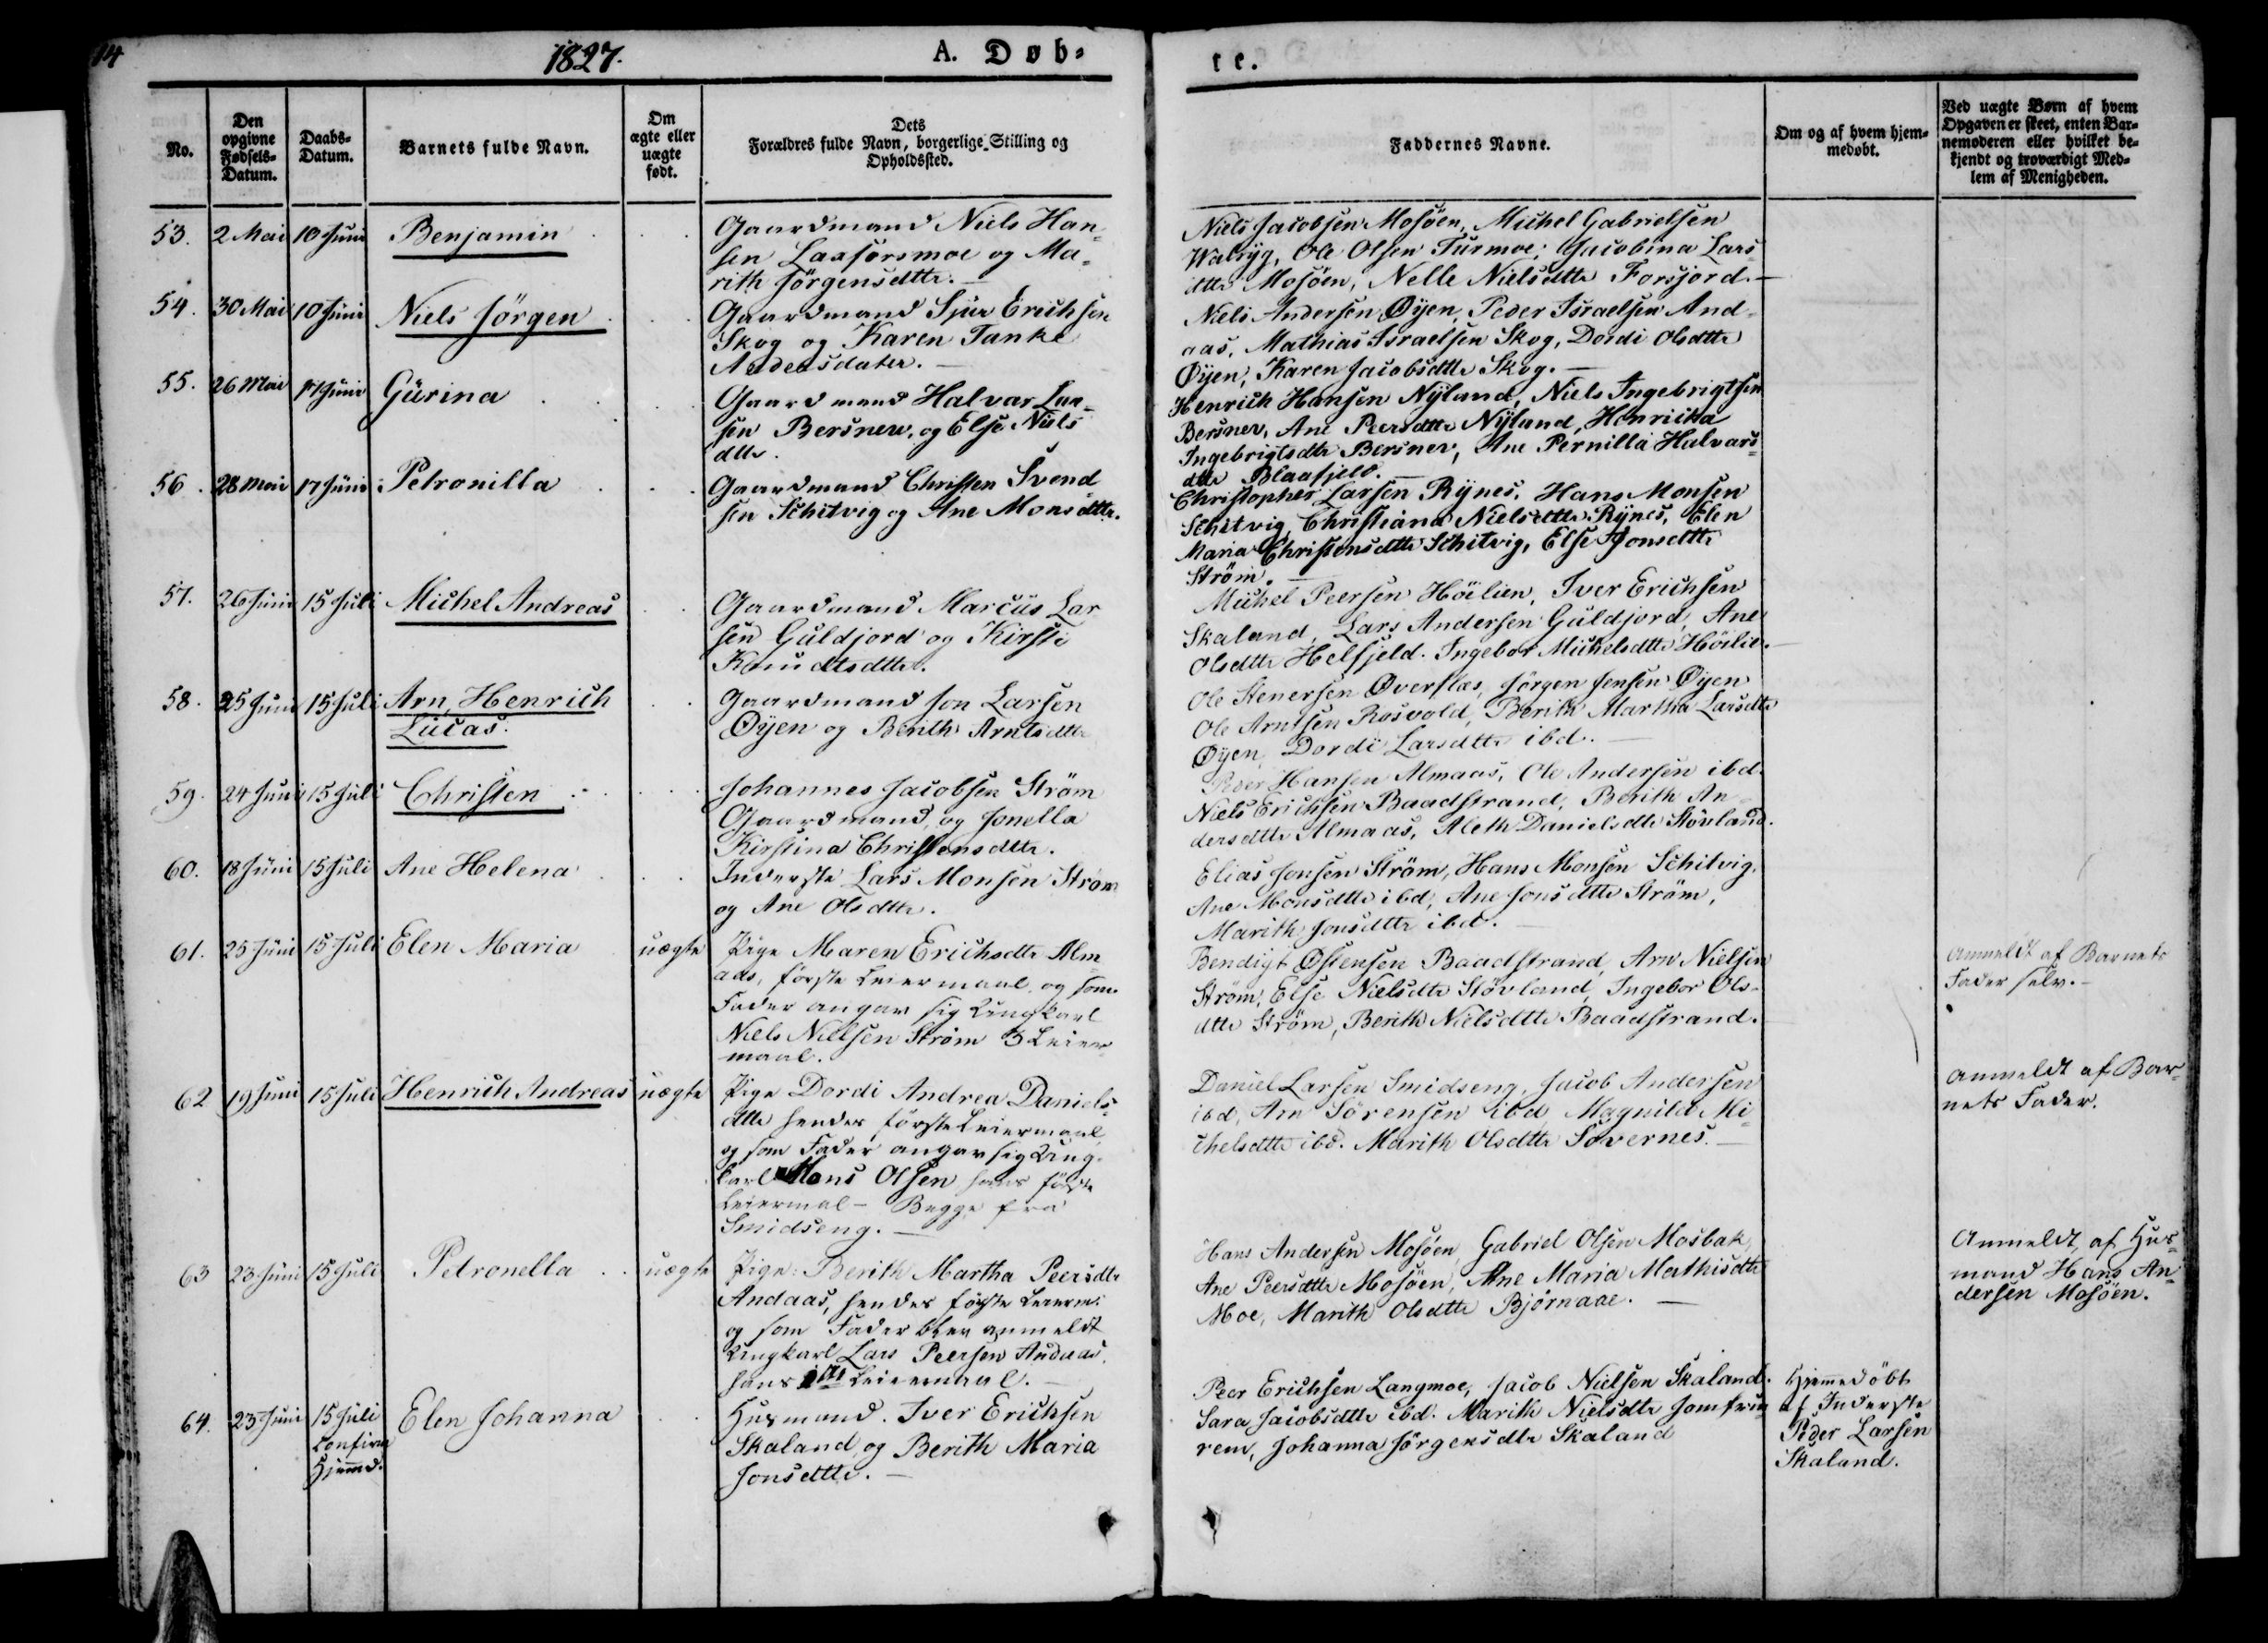 14
1827.
A. Døb-
te.
No.
Den opgivne Fødsels-Datum.
Daabs-Datum.
Barnets fulde Navn.
Om ægte eller uægte født.
Dets Forældres fulde Navn, borgerlige Stilling og Opholdssted.
Faddernes Navne.
Om og af hvem hjem-medøbt.
Ved uægte Børn af hvem Opgaven er skeet, enten Bar-nemoderen eller hvilket be-kjendt og troværdigt Med-lem af Menigheden.
53. 2 Mai 10 Juni Benjamin
Gaardmand Niels Han-
sen Laxforsmoe og Ma-
rith Jörgensdttr.
Niels Jacobsen Mosöen, Michel Gabrielsen
Walryg, Ole Olsen Turmoe, Jacobina Lars-
dttr Mosöen, Nelle Nielsdttr Forsjord.
54. 30 Mai 10 Juni Niels Jörgen
Gaardmand Sjur Erichsen
Skog og Karen Tanke
Andersdater.
Niels Andersen Øyen, Peder Israelsen And-
aas, Mathias Israelsen Skog, Dordi Olsdttr
Øyen, Karen Jacobsdttr Skog.
55. 26 Mai 17 Juni Gurina
Gaardmand Halvar Lar-
sen Bersnev, og Else Niels
dttr.
Henrich Hansen Nyland, Niels Ingebrigtsen
Bersnev, Ane Peersdttr Nyland, Henricha
Ingebrigtsdttr Bersnev, Ane Pernilla Halvars-
dttr Blaafjeld.
56. 28 Mai 17 Juni Petronilla
Gaardmand Christen Svend
sen Schitvig og Ane Monsdttr.
Christopher Larsen Rynes, Hans Monsen
Schitvig, Christiana Nielsdttr Rynes, Elen
Maria Christensdttr Schitvig, Else Jonsdttr
Ström.
57. 26 Juni 15 Juli Michel Andreas
Gaardmand Marcus Lar
sen Guldjord og Kirsti
Knudtsdttr.
Michel Peersen Höilien, Iver Erichsen
Skaland, Lars Andersen Guldjord, Ane
Olsdttr Helfjeld. Ingebor Michelsdttr Höilie.
58. 25 Juni 15 Juli Arn, Henrich
Lucas.
Gaardmand Jon Larsen
Øyen og Berith Arntsdttr
Ole Stenersen Øverflæs, Jörgen Jensen Øyen
Ole Arntsen Rosvold, Berith Martha Larsdttr
Øyen, Dordi Larsdttr ibd.
59. 24 Juni 15 Juli Christen
Johannes Jacobsen Ström
Gaardmand, og Jonella
Kirstina Christensdttr.
Peder Hansen Almaas, Ole Andersen ibd.
Niels Erichsen Baadstrand, Berith An-
dersdttr Almaas, Aleth Danielsdttr Stövland.
60. 18 Juni 15 Juli Ane Helena
Inderste Lars Monsen Ström
og Ane Olsdttr.
Elias Jonsen Ström, Hans Monsen Schitvig,
Ane Monsdttr ibd, Ane Jonsdttr Ström,
Marith Jonsdttr ibd.
61. 25 Juni 15 Juli Elen Maria uægte
Pige Maren Erichsdttr Alm
aas, förste Leiermaal, og som
Fader angav sig Ungkarl
Niels Nielsen Ström 3 Leier-
maal.
Bendigt Østensen Baadstrand, Arn Nielsen
Ström, Else Nielsdttr Stövland, Ingebor Ols-
dttr Ström, Berith Nielsdttr Baadstrand.
Anmeldt af Barnets
Fader selv.
62 19 Juni 15 Juli Henrich Andreas uægte
Pige Dordi Andrea Daniels-
dttr hendes förste Leiermaal,
og som Fader angav sig Ung-
karl Mons Olsen hans förste
Leiermal - Begge fra
Smidseng.
Daniel Larsen Smidseng, Jacob Andersen
ibd, Arn Sörensen ibd, Magnild Mi-
chelsdttr ibd. Marith Olsdttr Sövernes.
Anmeldt af Bar-
nets Fader.
63 23 Juni 15 Juli Petronella uægte
Pige: Berith Martha Peersdttr
Andaas, hendes förste Leierm:
og som Fader blev anmeldt
Ungkarl Lars Peersen Andaas,
hans 1ste Leiermaal.
Hans Andersen Mosöen, Gabriel Olsen Mosbak,
Ane Peersdttr Mosöen, Ane Maria Mathisdttr
Moe, Marith Olsdttr Björnaae.
Anmeldt, af Hus-
mand Hans An-
dersen Mosöen.
64. 23 Juni 15 Juli
Confirm
Hjemmd.
Elen Johanna
Husmand. Iver Erichsen
Skaland, og Berith Maria
Jonsdttr.
Peer Erichsen Langmoe, Jacob Nielsen Skaland.
Sara Jacobsdttr ibd. Marith Nielsdttr Jomfru
rem, Johanna Jörgensdttr Skaland
Hjemmedöbt
af Inderste
Peder Larsen
Skaland.